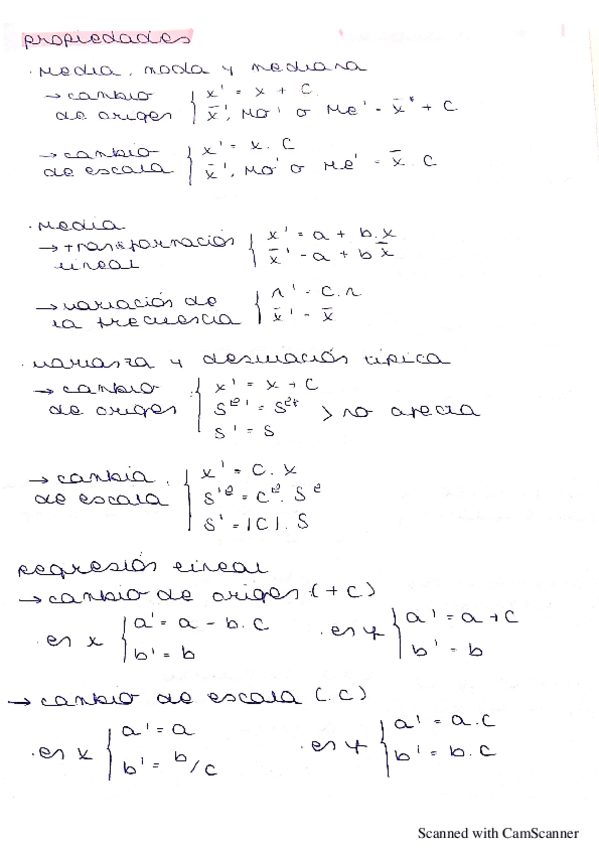 propiedades
· Media, moda y mediana
→ cambio de origen { x' = x + c.
x̄', Mo' o Me' = x̄* + c
→ cambio de escala { x' = x . c
x̄', Mo' o Me' = x̄ . c
· Media
→ transformación lineal { x' = a + b.x
x̄' = a + b x̄
→ variación de la frecuencia { n' = c.n
x̄' = x̄
· varianza y desviación típica
→ cambio de origen { x' = x + c
S²' = S²* > no afecta
S' = S
→ cambia de escala { x' = c . x
S'² = c² . S²
S' = |c| . S
Regresión lineal
→ cambio de origen (+c)
· en x { a' = a - b.c
b' = b
· en y { a' = a + c
b' = b
→ cambio de escala (.c)
· en x { a' = a
b' = b/c
· en y { a' = a.c
b' = b.c
Scanned with CamScanner